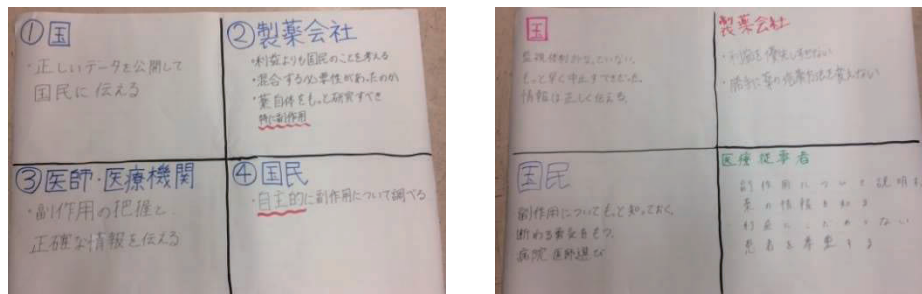 ①国
・正しいデータを公開して
国民に伝える
②製薬会社
・利益よりも国民のことを考える
・混合する必要性があったのか
・薬自体をもっと研究すべき
特に副作用
③医師・医療機関
・副作用の把握と
正確な情報を伝える
④国民
・自主的に副作用について調べる
国
監視体制が立っていない。
もっと早く中止すべきだった。
情報は正しく伝える。
製薬会社
・利益を優先しすぎない
・勝手に薬の培養方法を変えない
国民
副作用についてもっと知っておく。
断わる勇気をもつ。
病院 医師選び
医療従事者
副作用について説明する
薬の情報を知る
利益にこだわらない
患者を尊重する